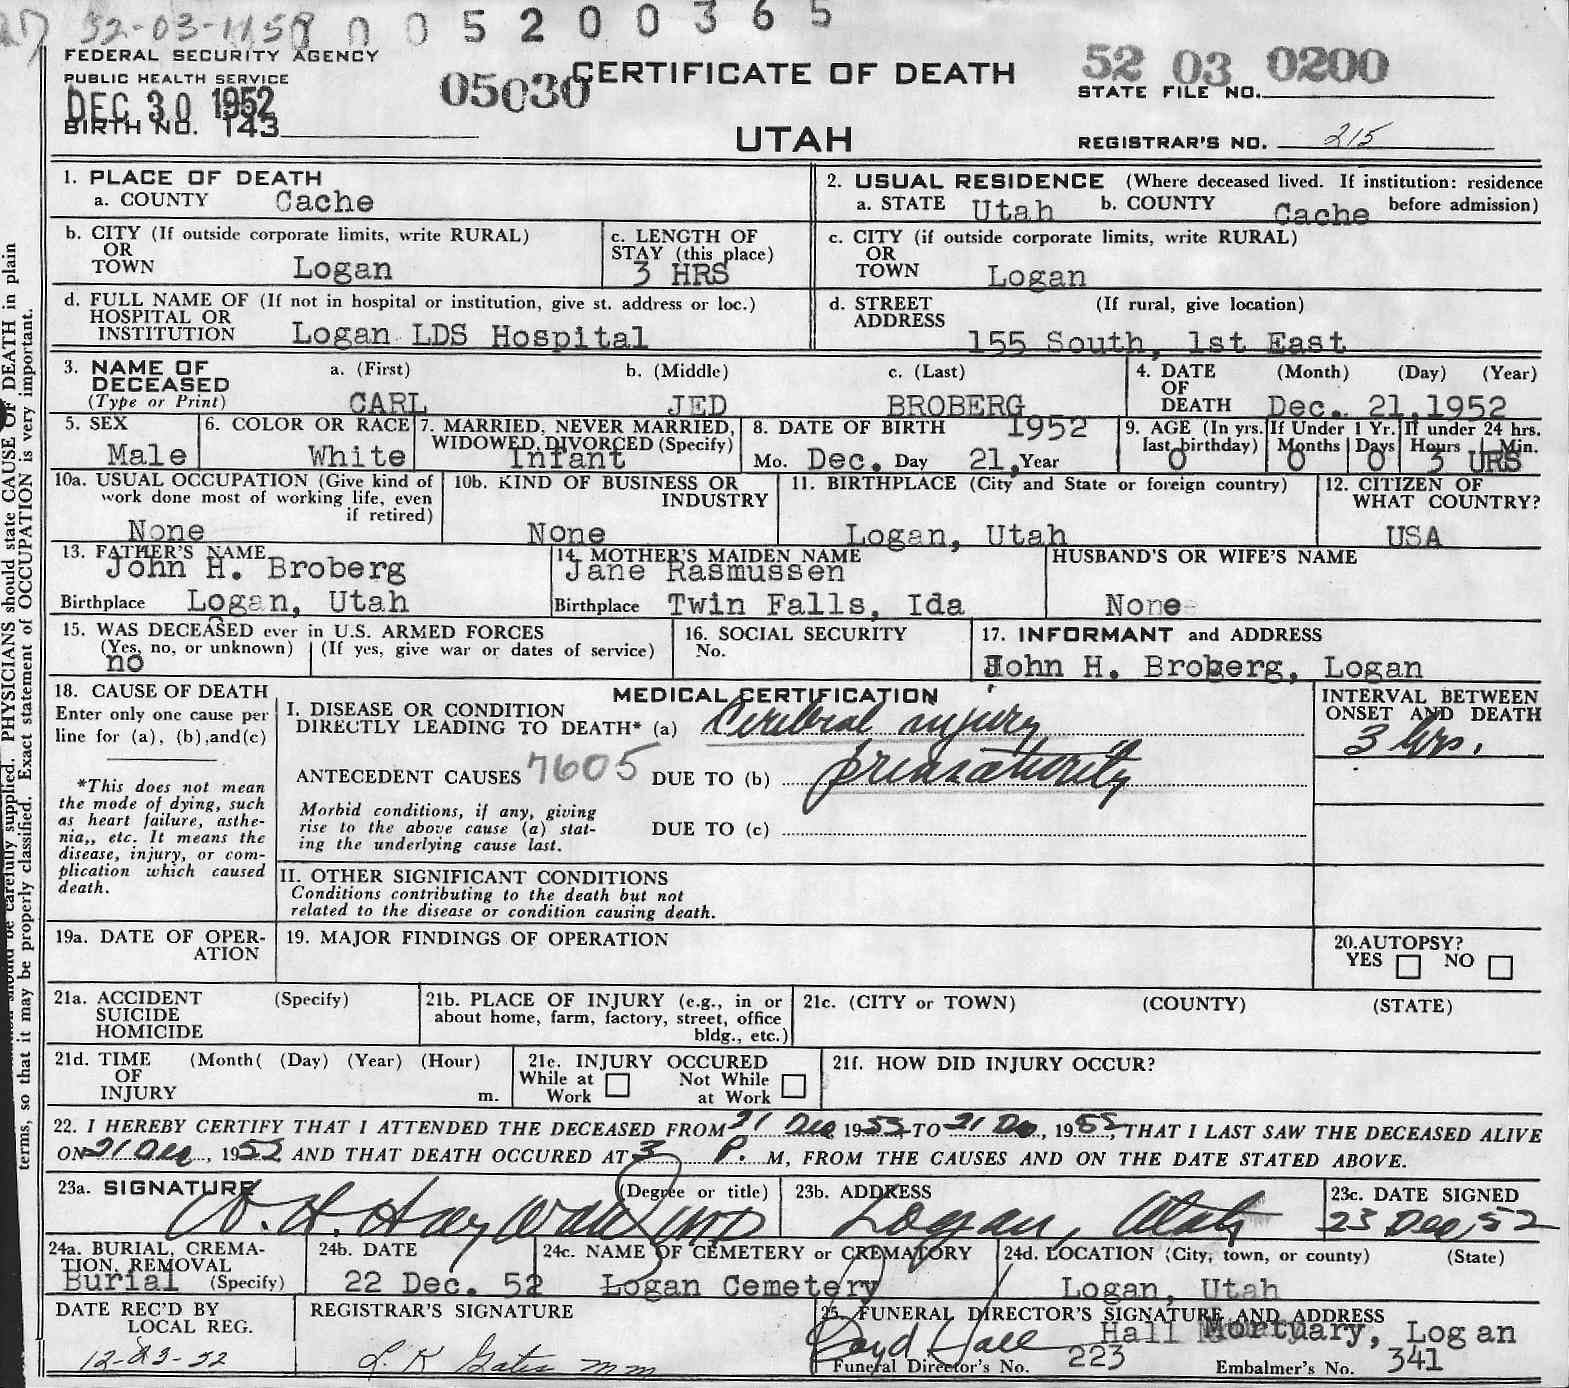 52-03-1158 0 0 5 2 0 0 3 6 5
FEDERAL SECURITY AGENCY
PUBLIC HEALTH SERVICE
DEC 30 1952
BIRTH NO. 143
05030
CERTIFICATE OF DEATH
UTAH
52 03 0200
STATE FILE NO.
REGISTRAR'S NO. 215
1. PLACE OF DEATH
a. COUNTY Cache
2. USUAL RESIDENCE (Where deceased lived. If institution: residence before admission)
a. STATE Utah b. COUNTY Cache
b. CITY (If outside corporate limits, write RURAL)
OR
TOWN Logan
c. LENGTH OF
STAY (this place)
3 HRS
c. CITY (if outside corporate limits, write RURAL)
OR
TOWN Logan
d. FULL NAME OF (If not in hospital or institution, give st. address or loc.)
HOSPITAL OR
INSTITUTION Logan LDS Hospital
d. STREET (If rural, give location)
ADDRESS
155 South, 1st East
3. NAME OF
DECEASED
(Type or Print)
a. (First) b. (Middle) c. (Last)
CARL JED BROBERG
4. DATE (Month) (Day) (Year)
OF
DEATH Dec. 21,1952
5. SEX
Male
6. COLOR OR RACE
White
7. MARRIED, NEVER MARRIED,
WIDOWED, DIVORCED (Specify)
Infant
8. DATE OF BIRTH 1952
Mo. Dec. Day 21, Year
9. AGE (In yrs. last birthday)
0
If Under 1 Yr.
Months Days
0 0
If under 24 hrs.
Hours Min.
3 URS
10a. USUAL OCCUPATION (Give kind of
work done most of working life, even
if retired)
None
10b. KIND OF BUSINESS OR
INDUSTRY
None
11. BIRTHPLACE (City and State or foreign country)
Logan, Utah
12. CITIZEN OF
WHAT COUNTRY?
USA
13. FATHER'S NAME
John H. Broberg
Birthplace Logan, Utah
14. MOTHER'S MAIDEN NAME
Jane Rasmussen
Birthplace Twin Falls, Ida
HUSBAND'S OR WIFE'S NAME
None
15. WAS DECEASED ever in U.S. ARMED FORCES
(Yes, no, or unknown) (If yes, give war or dates of service)
no
16. SOCIAL SECURITY
No.
17. INFORMANT and ADDRESS
John H. Broberg, Logan
18. CAUSE OF DEATH
Enter only one cause per
line for (a), (b),and(c)
*This does not mean
the mode of dying, such
as heart failure, asthe-
nia,, etc. It means the
disease, injury, or com-
plication which caused
death.
MEDICAL CERTIFICATION
I. DISEASE OR CONDITION
DIRECTLY LEADING TO DEATH* (a) Cerebral injury
ANTECEDENT CAUSES 7605 DUE TO (b) prematurity
Morbid conditions, if any, giving
rise to the above cause (a) stat-
ing the underlying cause last.
DUE TO (c)
INTERVAL BETWEEN
ONSET AND DEATH
3 hrs.
II. OTHER SIGNIFICANT CONDITIONS
Conditions contributing to the death but not
related to the disease or condition causing death.
19a. DATE OF OPER-
ATION
19. MAJOR FINDINGS OF OPERATION
20. AUTOPSY?
YES NO
21a. ACCIDENT (Specify)
SUICIDE
HOMICIDE
21b. PLACE OF INJURY (e.g., in or
about home, farm, factory, street, office
bldg., etc.)
21c. (CITY or TOWN) (COUNTY) (STATE)
21d. TIME (Month( (Day) (Year) (Hour)
OF
INJURY m.
21e. INJURY OCCURED
While at Work Not While at Work
21f. HOW DID INJURY OCCUR?
22. I HEREBY CERTIFY THAT I ATTENDED THE DECEASED FROM 21 Dec, 1952, TO 21 Dec, 1952, THAT I LAST SAW THE DECEASED ALIVE
ON 21 Dec, 1952 AND THAT DEATH OCCURED AT 3 P. M, FROM THE CAUSES AND ON THE DATE STATED ABOVE.
23a. SIGNATURE (Degree or title)
MD
23b. ADDRESS
Logan, Utah
23c. DATE SIGNED
23 Dec 52
24a. BURIAL, CREMA-
TION, REMOVAL
Burial (Specify)
24b. DATE
22 Dec. 52
24c. NAME OF CEMETERY or CREMATORY
Logan Cemetery
24d. LOCATION (City, town, or county) (State)
Logan, Utah
DATE REC'D BY
LOCAL REG.
12-23-52
REGISTRAR'S SIGNATURE
25. FUNERAL DIRECTOR'S SIGNATURE AND ADDRESS
Boyd Hall Hall Mortuary, Logan
Funeral Director's No. 223 Embalmer's No. 341
PHYSICIANS should state CAUSE OF DEATH in plain
terms, so that it may be properly classified. Exact statement of OCCUPATION is very important.